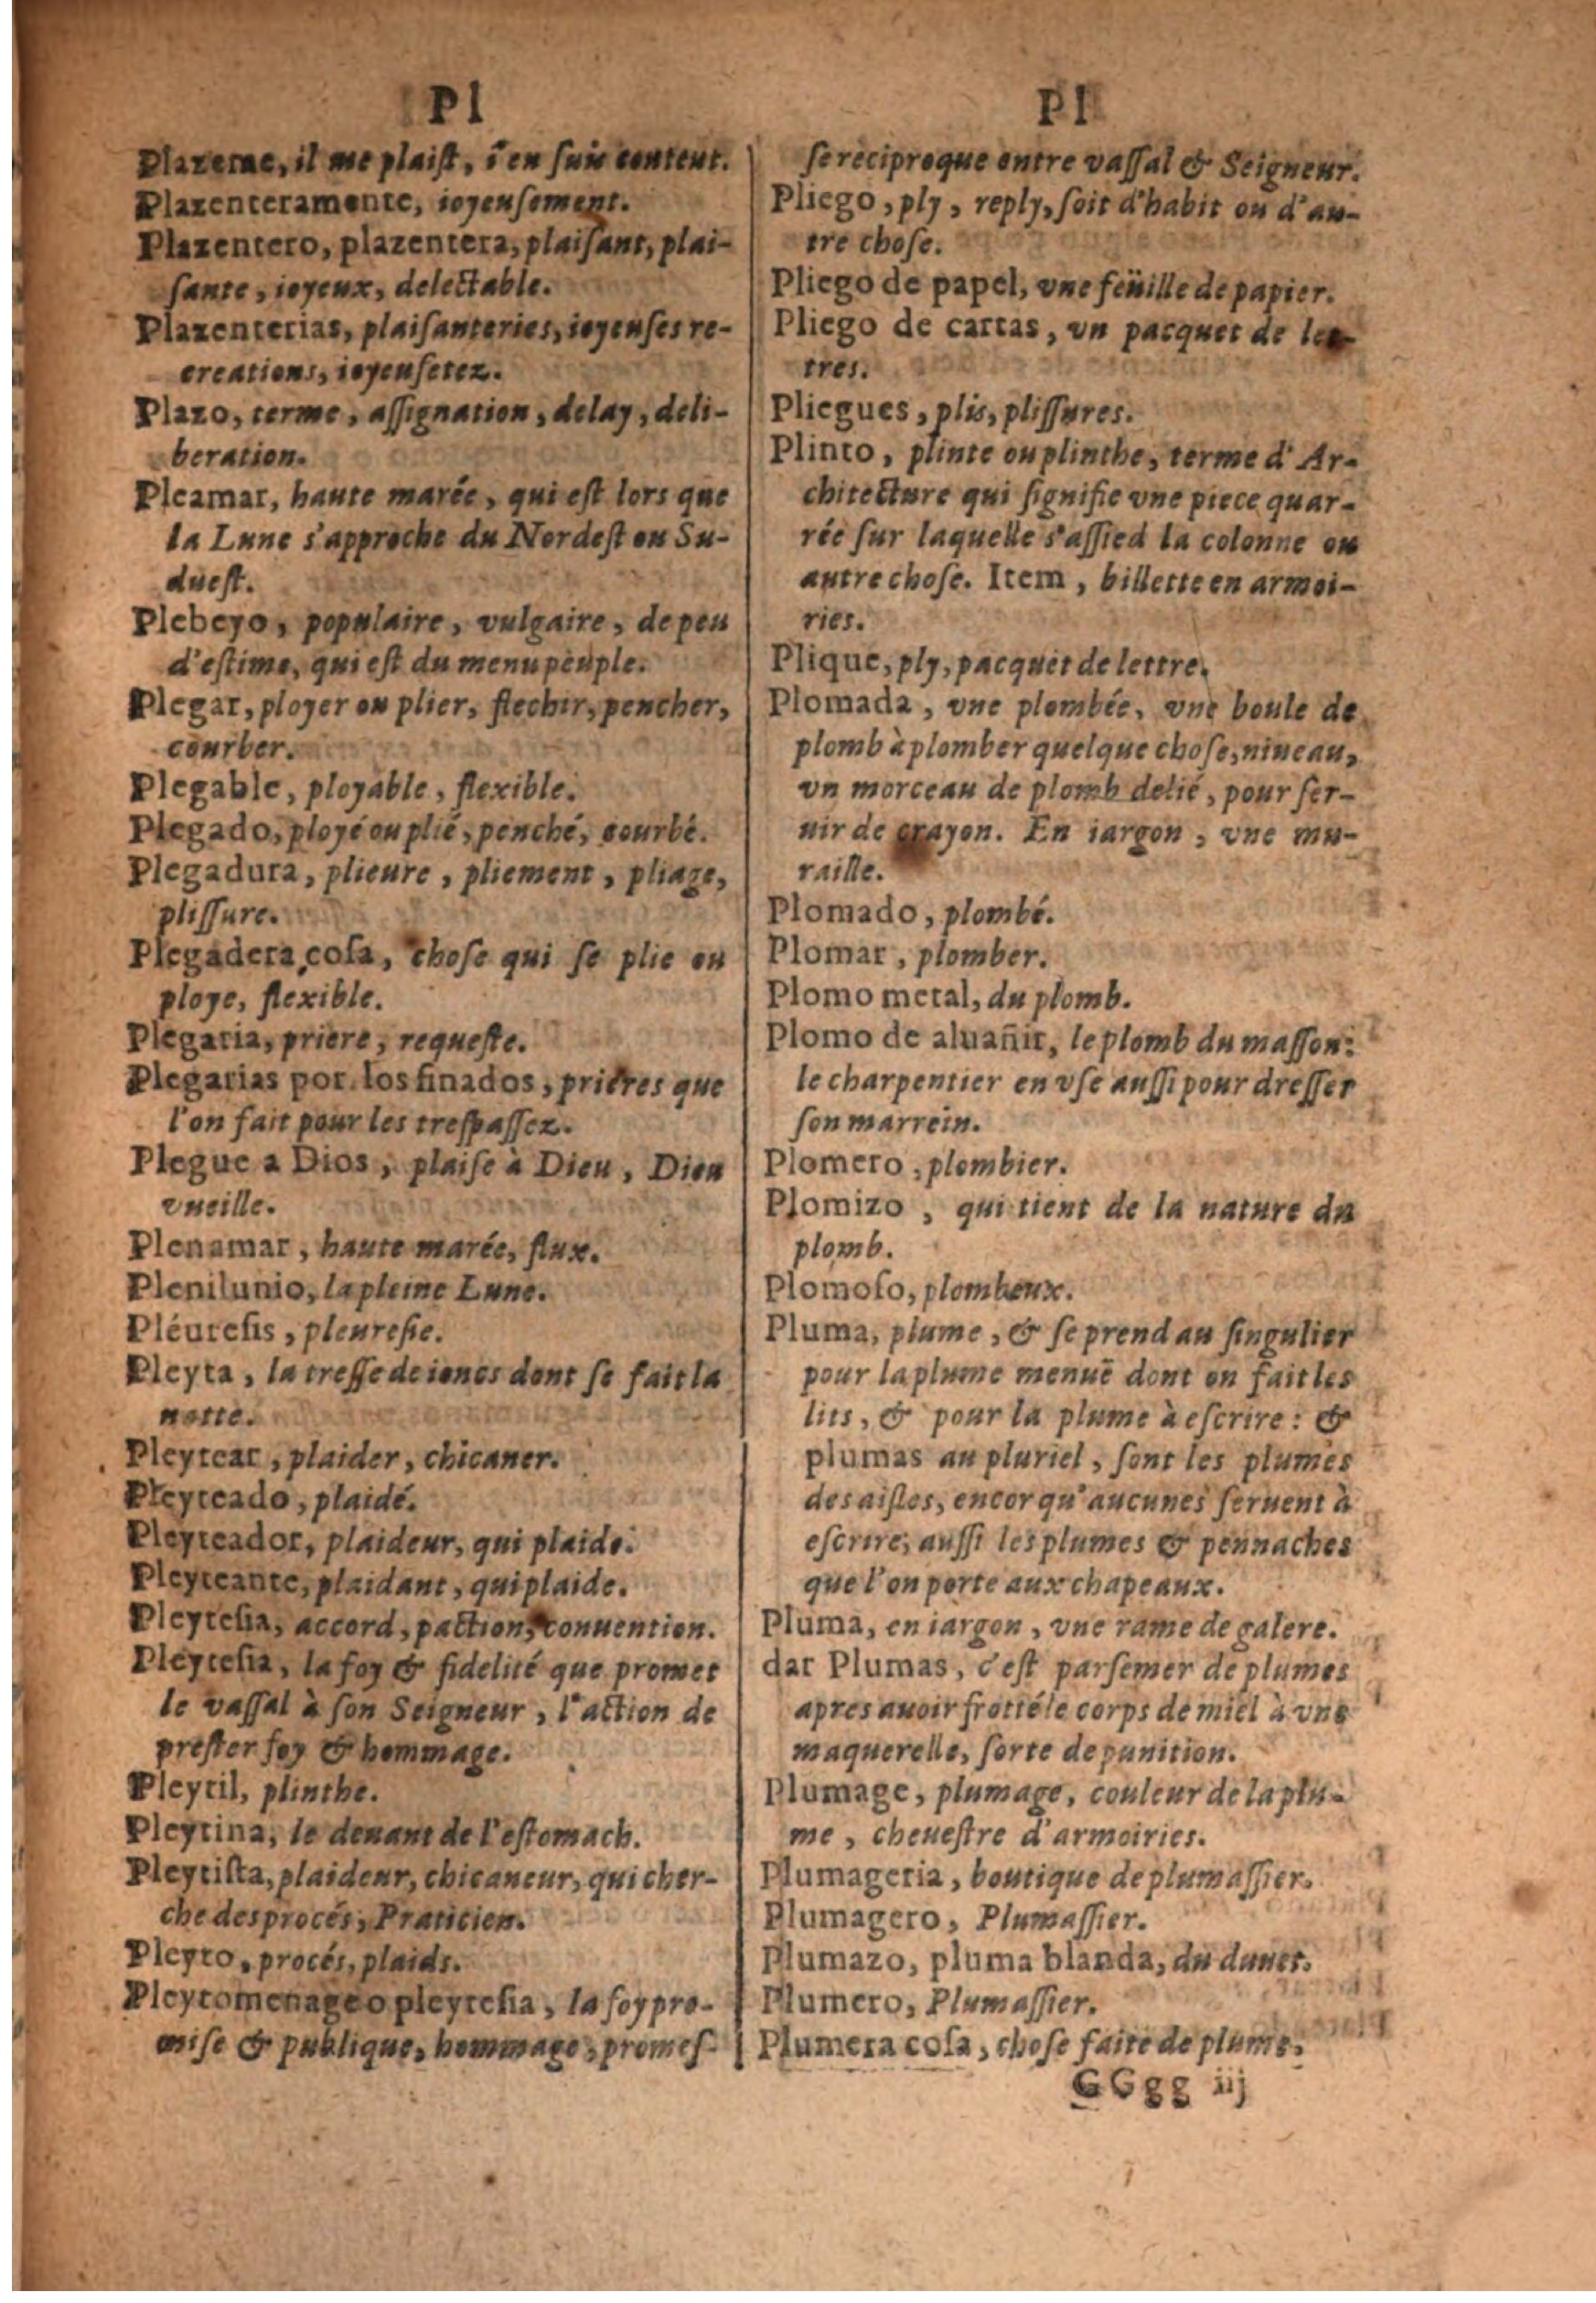 Pl
Plazeme, il me plaist, i'en suis content.
Plazenteramente, ioyeusement.
Plazentero, plazentera, plaisant, plai-
sante, ioyeux, delectable.
Plazenterias, plaisanteries, ioyeuses re-
creations, ioyeusetez.
Plazo, terme, assignation, delay, deli-
beration.
Pleamar, haute marée, qui est lors que
la Lune s'approche du Nordest ou Su-
duest.
Plebeyo, populaire, vulgaire, de peu
d'estime, qui est du menu peuple.
Plegar, ployer ou plier, flechir, pencher,
courber.
Plegable, ployable, flexible.
Plegado, ployé ou plié, penché, courbé.
Plegadura, plieure, pliement, pliage,
plissure.
Plegadera cosa, chose qui se plie ou
ploye, flexible.
Plegaria, priere, requeste.
Plegarias por los finados, prieres que
l'on fait pour les trespassez.
Plegue a Dios, plaise à Dieu, Dieu
vueille.
Plenamar, haute marée, flux.
Plenilunio, la pleine Lune.
Pléuresis, pleuresie.
Pleyta, la tresse de ioncs dont se fait la
natte.
Pleytear, plaider, chicaner.
Pleyteado, plaidé.
Pleyteador, plaideur, qui plaide.
Pleyteante, plaidant, qui plaide.
Pleytesia, accord, paction, conuention.
Pleytesia, la foy & fidelité que promet
le vassal à son Seigneur, l'action de
prester foy & hommage.
Pleytil, plinthe.
Pleytina, le deuant de l'estomach.
Pleytista, plaideur, chicaneur, qui cher-
che des procés, Praticien.
Pleyto, procés, plaids.
Pleytomenage o pleytesia, la foy pro-
mise & publique, hommage, promes-
Pl
se reciproque entre vassal & Seigneur.
Pliego, ply, reply, soit d'habit ou d'au-
tre chose.
Pliego de papel, vne feüille de papier.
Pliego de cartas, vn pacquet de let-
tres.
Pliegues, plis, plissures.
Plinto, plinte ou plinthe, terme d'Ar-
chitecture qui signifie vne piece quar-
rée sur laquelle s'assied la colonne ou
autre chose. Item, billette en armoi-
ries.
Plique, ply, pacquet de lettre.
Plomada, vne plombée, vne boule de
plomb à plomber quelque chose, niueau,
vn morceau de plomb delié, pour ser-
uir de crayon. En iargon, vne mu-
raille.
Plomado, plombé.
Plomar, plomber.
Plomo metal, du plomb.
Plomo de aluañir, le plomb du masson:
le charpentier en vse aussi pour dresser
son marrein.
Plomero, plombier.
Plomizo, qui tient de la nature du
plomb.
Plomoso, plombeux.
Pluma, plume, & se prend au singulier
pour la plume menuë dont on fait les
lits, & pour la plume à escrire: &
plumas au pluriel, sont les plumes
des aisles, encor qu'aucunes seruent à
escrire, aussi les plumes & pennaches
que l'on porte aux chapeaux.
Pluma, en iargon, vne rame de galere.
dar Plumas, c'est parsemer de plumes
apres auoir frotté le corps de miel à vne
maquerelle, sorte de punition.
Plumage, plumage, couleur de la plu-
me, cheuestre d'armoiries.
Plumageria, boutique de plumassier.
Plumagero, Plumassier.
Plumazo, pluma blanda, du duuet.
Plumero, Plumassier.
Plumera cosa, chose faite de plume.
GGgg iij